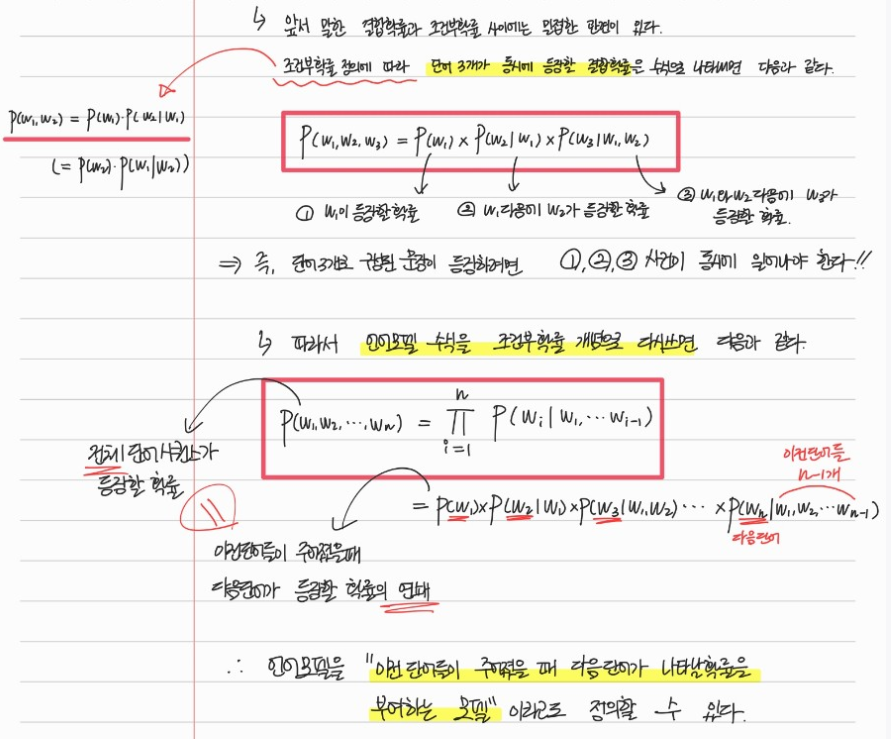 ↳ 앞서 말한 결합확률과 조건부확률 사이에는 밀접한 관련이 있다.
조건부확률 정의에 따라 단어 3개가 동시에 등장할 결합확률은 수식으로 나타내면 다음과 같다.
P(w₁,w₂) = P(w₁)·P(w₂|w₁)
(= P(w₂)·P(w₁|w₂))
P(w₁,w₂,w₃) = P(w₁) × P(w₂|w₁) × P(w₃|w₁,w₂)
① w₁이 등장할 확률
② w₁ 다음에 w₂가 등장할 확률
③ w₁와 w₂ 다음에 w₃가
등장할 확률.
⇒ 즉, 단어 3개로 구성된 문장이 등장하려면 ①,②,③ 사건이 동시에 일어나야 한다!!
↳ 따라서 언어모델 수식을 조건부확률 개념으로 다시쓰면 다음과 같다.
P(w₁,w₂,⋯,wₙ) = ∏ᵢ₌₁ⁿ P(wᵢ|w₁,⋯wᵢ₋₁)
전체 단어 시퀀스가
등장할 확률
||
이전 단어들
n-1개
= P(w₁)×P(w₂|w₁)×P(w₃|w₁,w₂)⋯ ×P(wₙ|w₁,w₂,⋯wₙ₋₁)
다음단어
이전단어들이 주어졌을때
다음단어가 등장할 확률의 연쇄
∴ 언어모델을 "이전 단어들이 주어졌을 때 다음 단어가 나타날 확률을
부여하는 모델" 이라고도 정의할 수 있다.